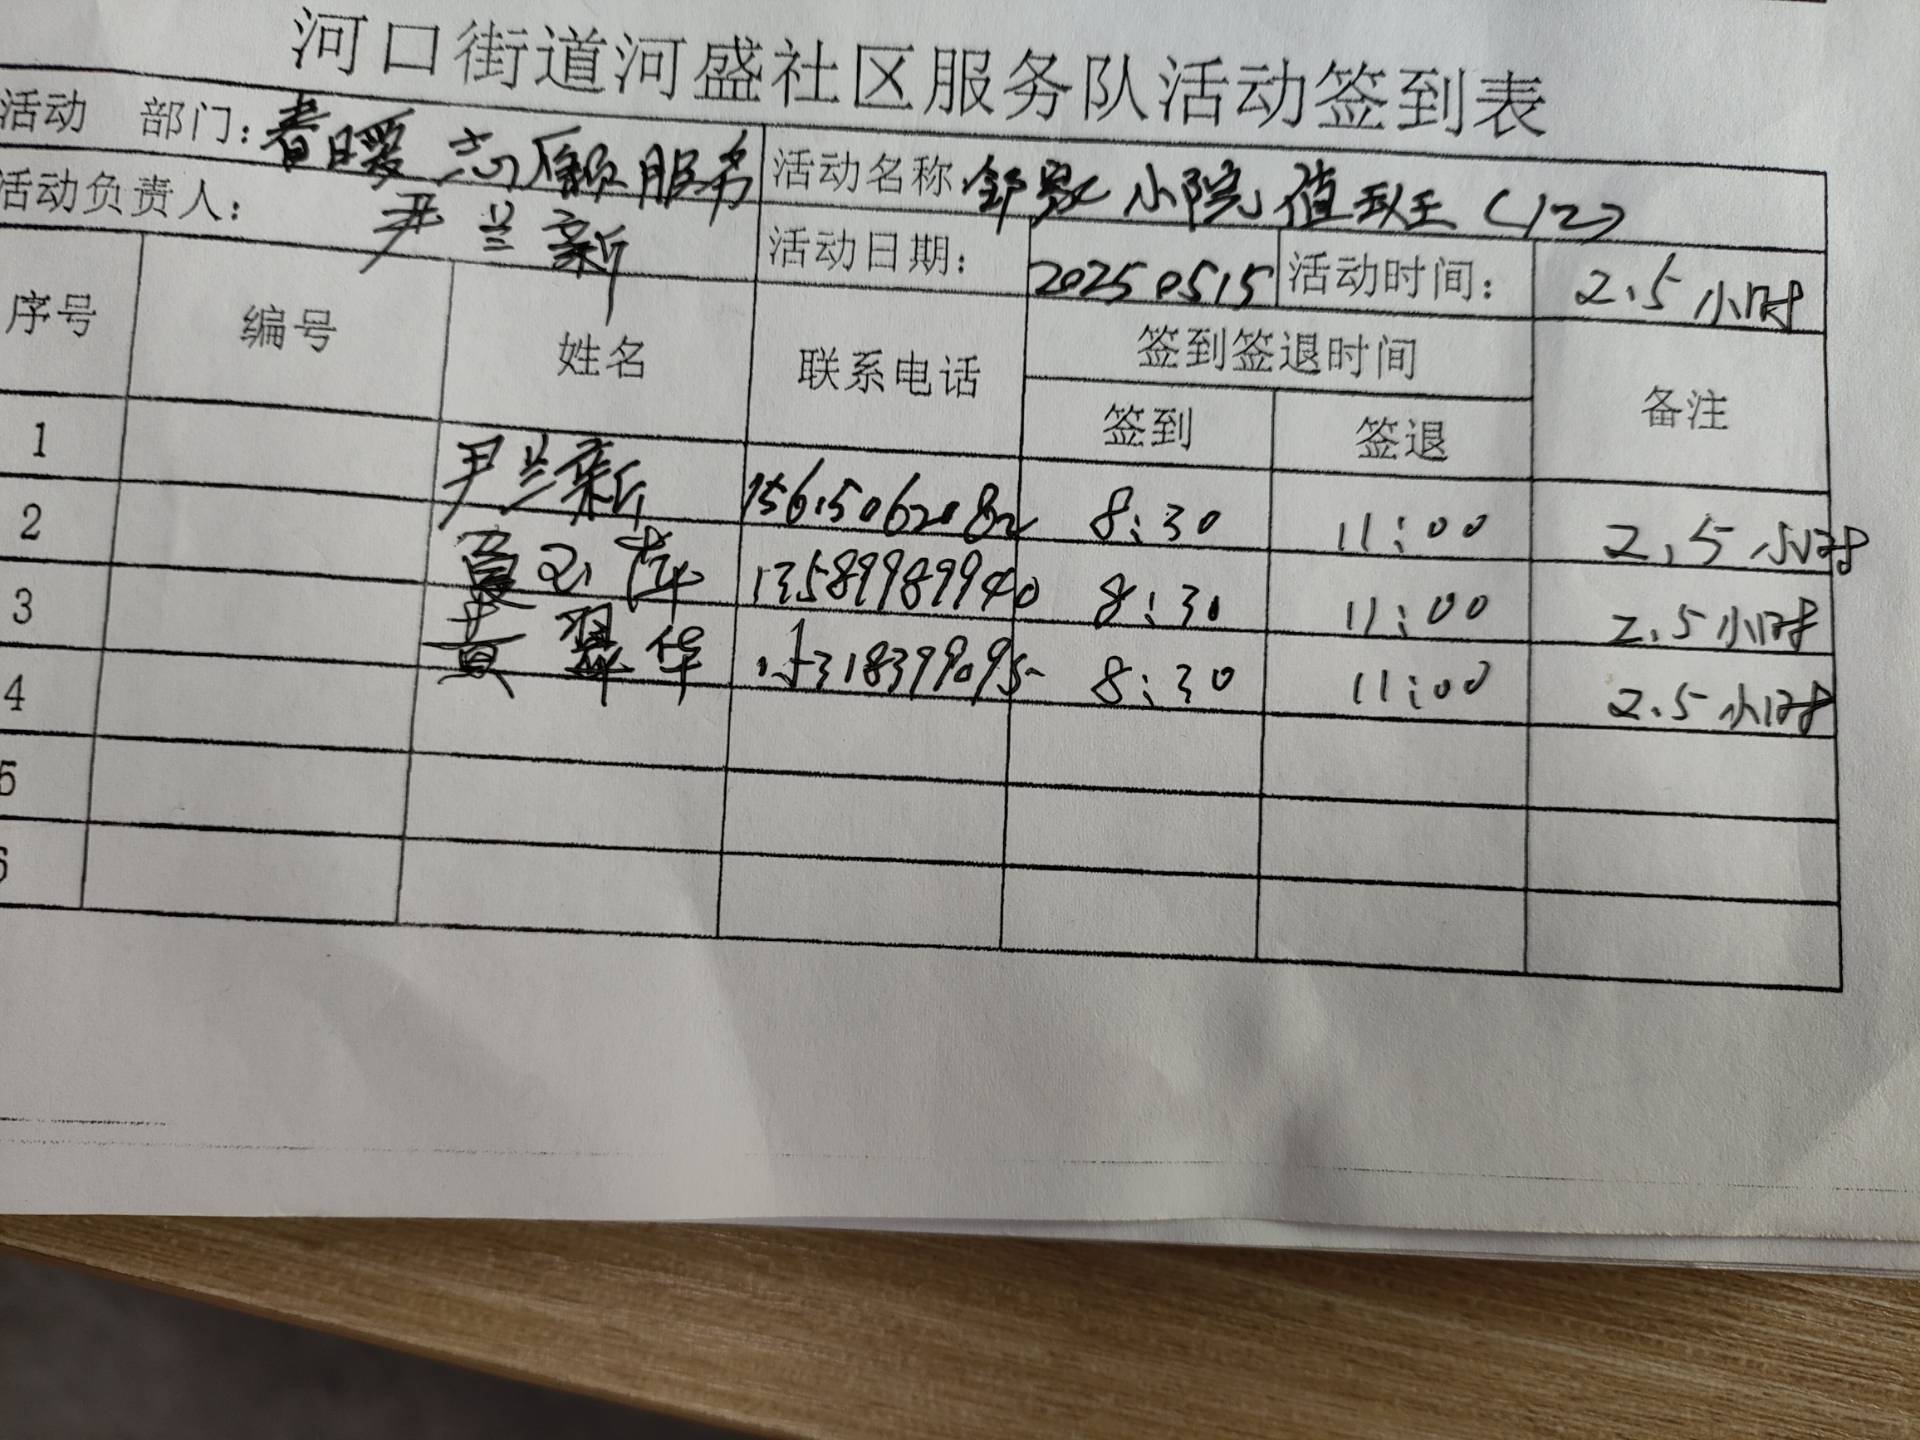 河口街道河盛社区服务队活动签到表
活动 部门: 春日暖志愿服务 活动名称: 邻家小院值班(12)
活动负责人: 尹兰新 活动日期: 20250515 活动时间: 2.5小时
序号 编号 姓名 联系电话 签到签退时间 备注
签到 签退
1 尹兰新 15615062082 8:30 11:00 2.5小时
2 13589989940 8:30 11:00 2.5小时
3 黄翠华 8:30 11:00 2.5小时
4
5
6